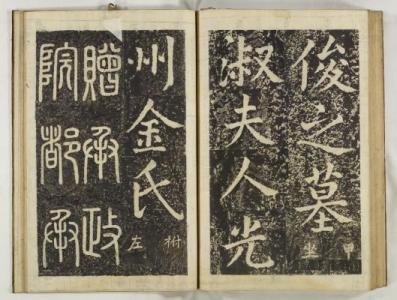 俊之墓
甲坐
淑夫人光
州金氏
祔左
贈承政
院都承